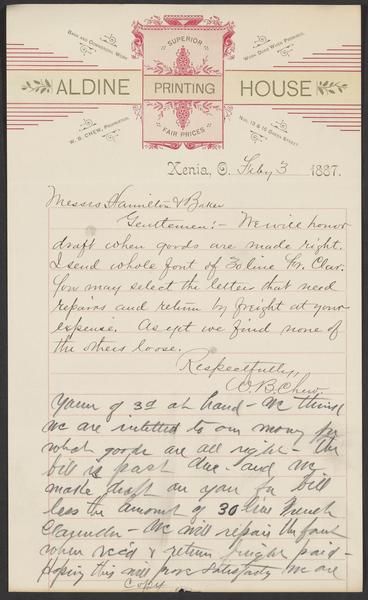 BOOK AND COMMERCIAL WORK
SUPERIOR
WORK DONE WHEN PROMISED.
ALDINE PRINTING HOUSE
W. B. CHEW, PROPRIETOR.
FAIR PRICES
NOS. 13 & 15 GREEN STREET
Xenia, O. Feby 3 1887.
Messrs Hamilton & Baker
Gentlemen:- We will honor
draft when goods are made right.
I send whole font of 30 line Fr. Clar.
You may select the letters that need
repairs and return by freight at your
expense. As yet we find none of
the others loose.
Respectfully,
W. B. Chew.
Yours of 3d at hand - We think
we are intitled to our money for
what goods are all right - the
bill is past due and we
make draft on you for bill
less the amount of 30 line French
Clarendon - We will repair the font
when rec'd & return freight paid -
Hoping this will prove satisfactory We are
Copy